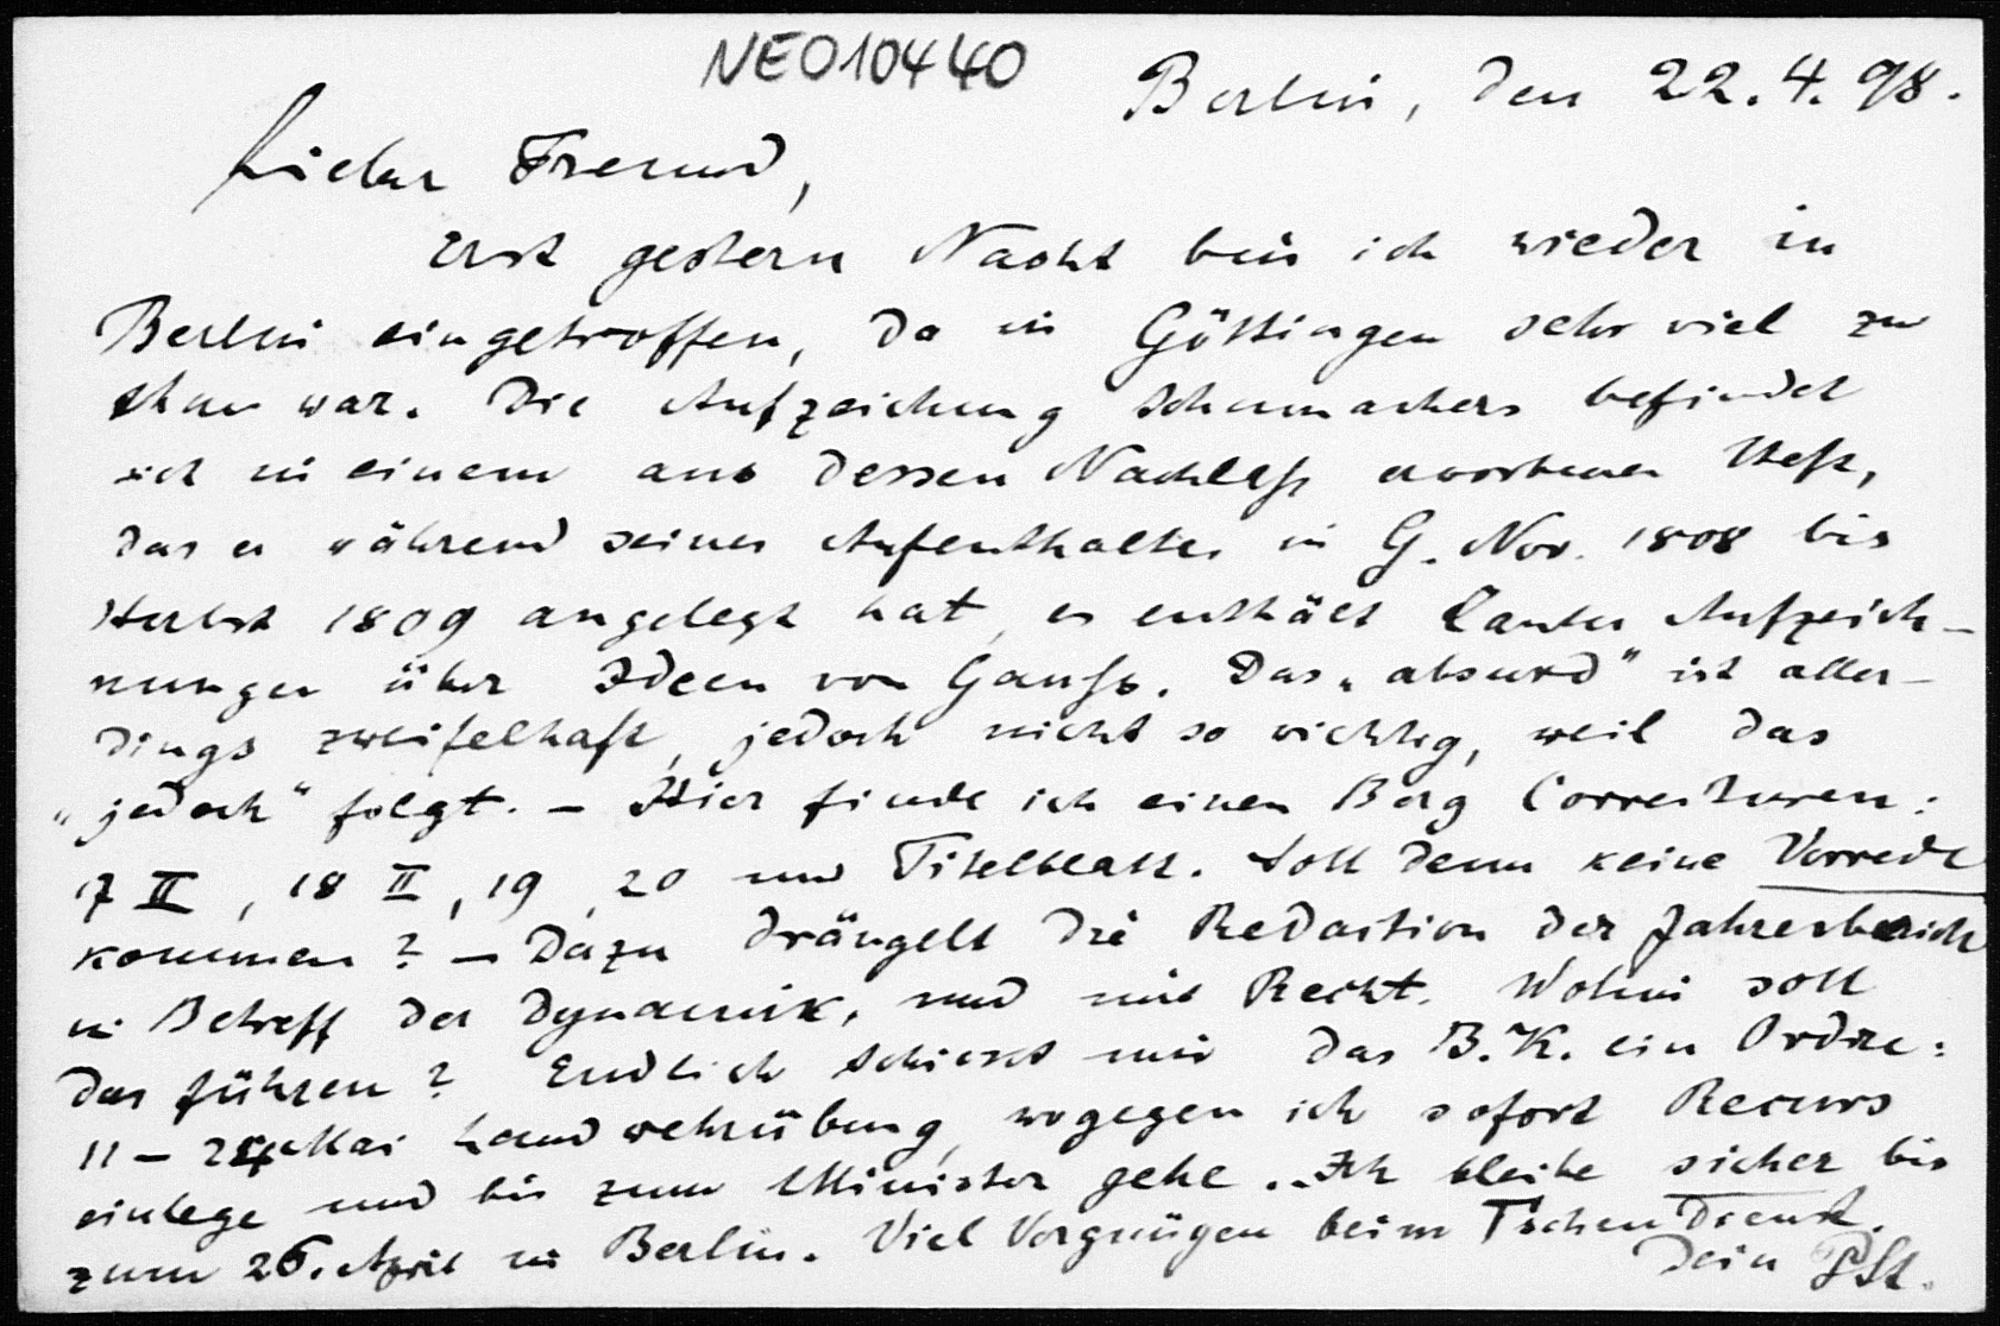 NE010440
Berlin, den 22.4.98.
Lieber Freund,
Erst gestern Nacht bin ich wieder in
Berlin eingetroffen, da in Göttingen sehr viel zu
thun war. Die Aufzeichnung Schumachers befindet
sich in einem aus dessen Nachlaß erworbenen Heft,
das er während seines Aufenthaltes in G. Nov. 1808 bis
Herbst 1809 angelegt hat, es enthält lauter Aufzeich-
nungen über Ideen von Gauß. Das „absurd" ist aller-
dings zweifelhaft, jedoch nicht so wichtig, weil das
„jedoch" folgt. – Hier finde ich einen Berg Correcturen:
17 II, 18 II, 19, 20 und Titelblatt. Soll denn keine Vorrede
kommen? – Dazu drängelt die Redaction der Jahresberich
in Betreff der Dynamik, und mit Recht. Wohin soll
das führen? Endlich schickt mir das B.K. ein Ordre:
11 – 24 Mai Landwehrübung, wogegen ich sofort Recurs
einlege und bis zum Minister gehe. Ich bleibe sicher bis
zum 26. April in Berlin. Viel Vergnügen beim Dienst.
Dein PSt.